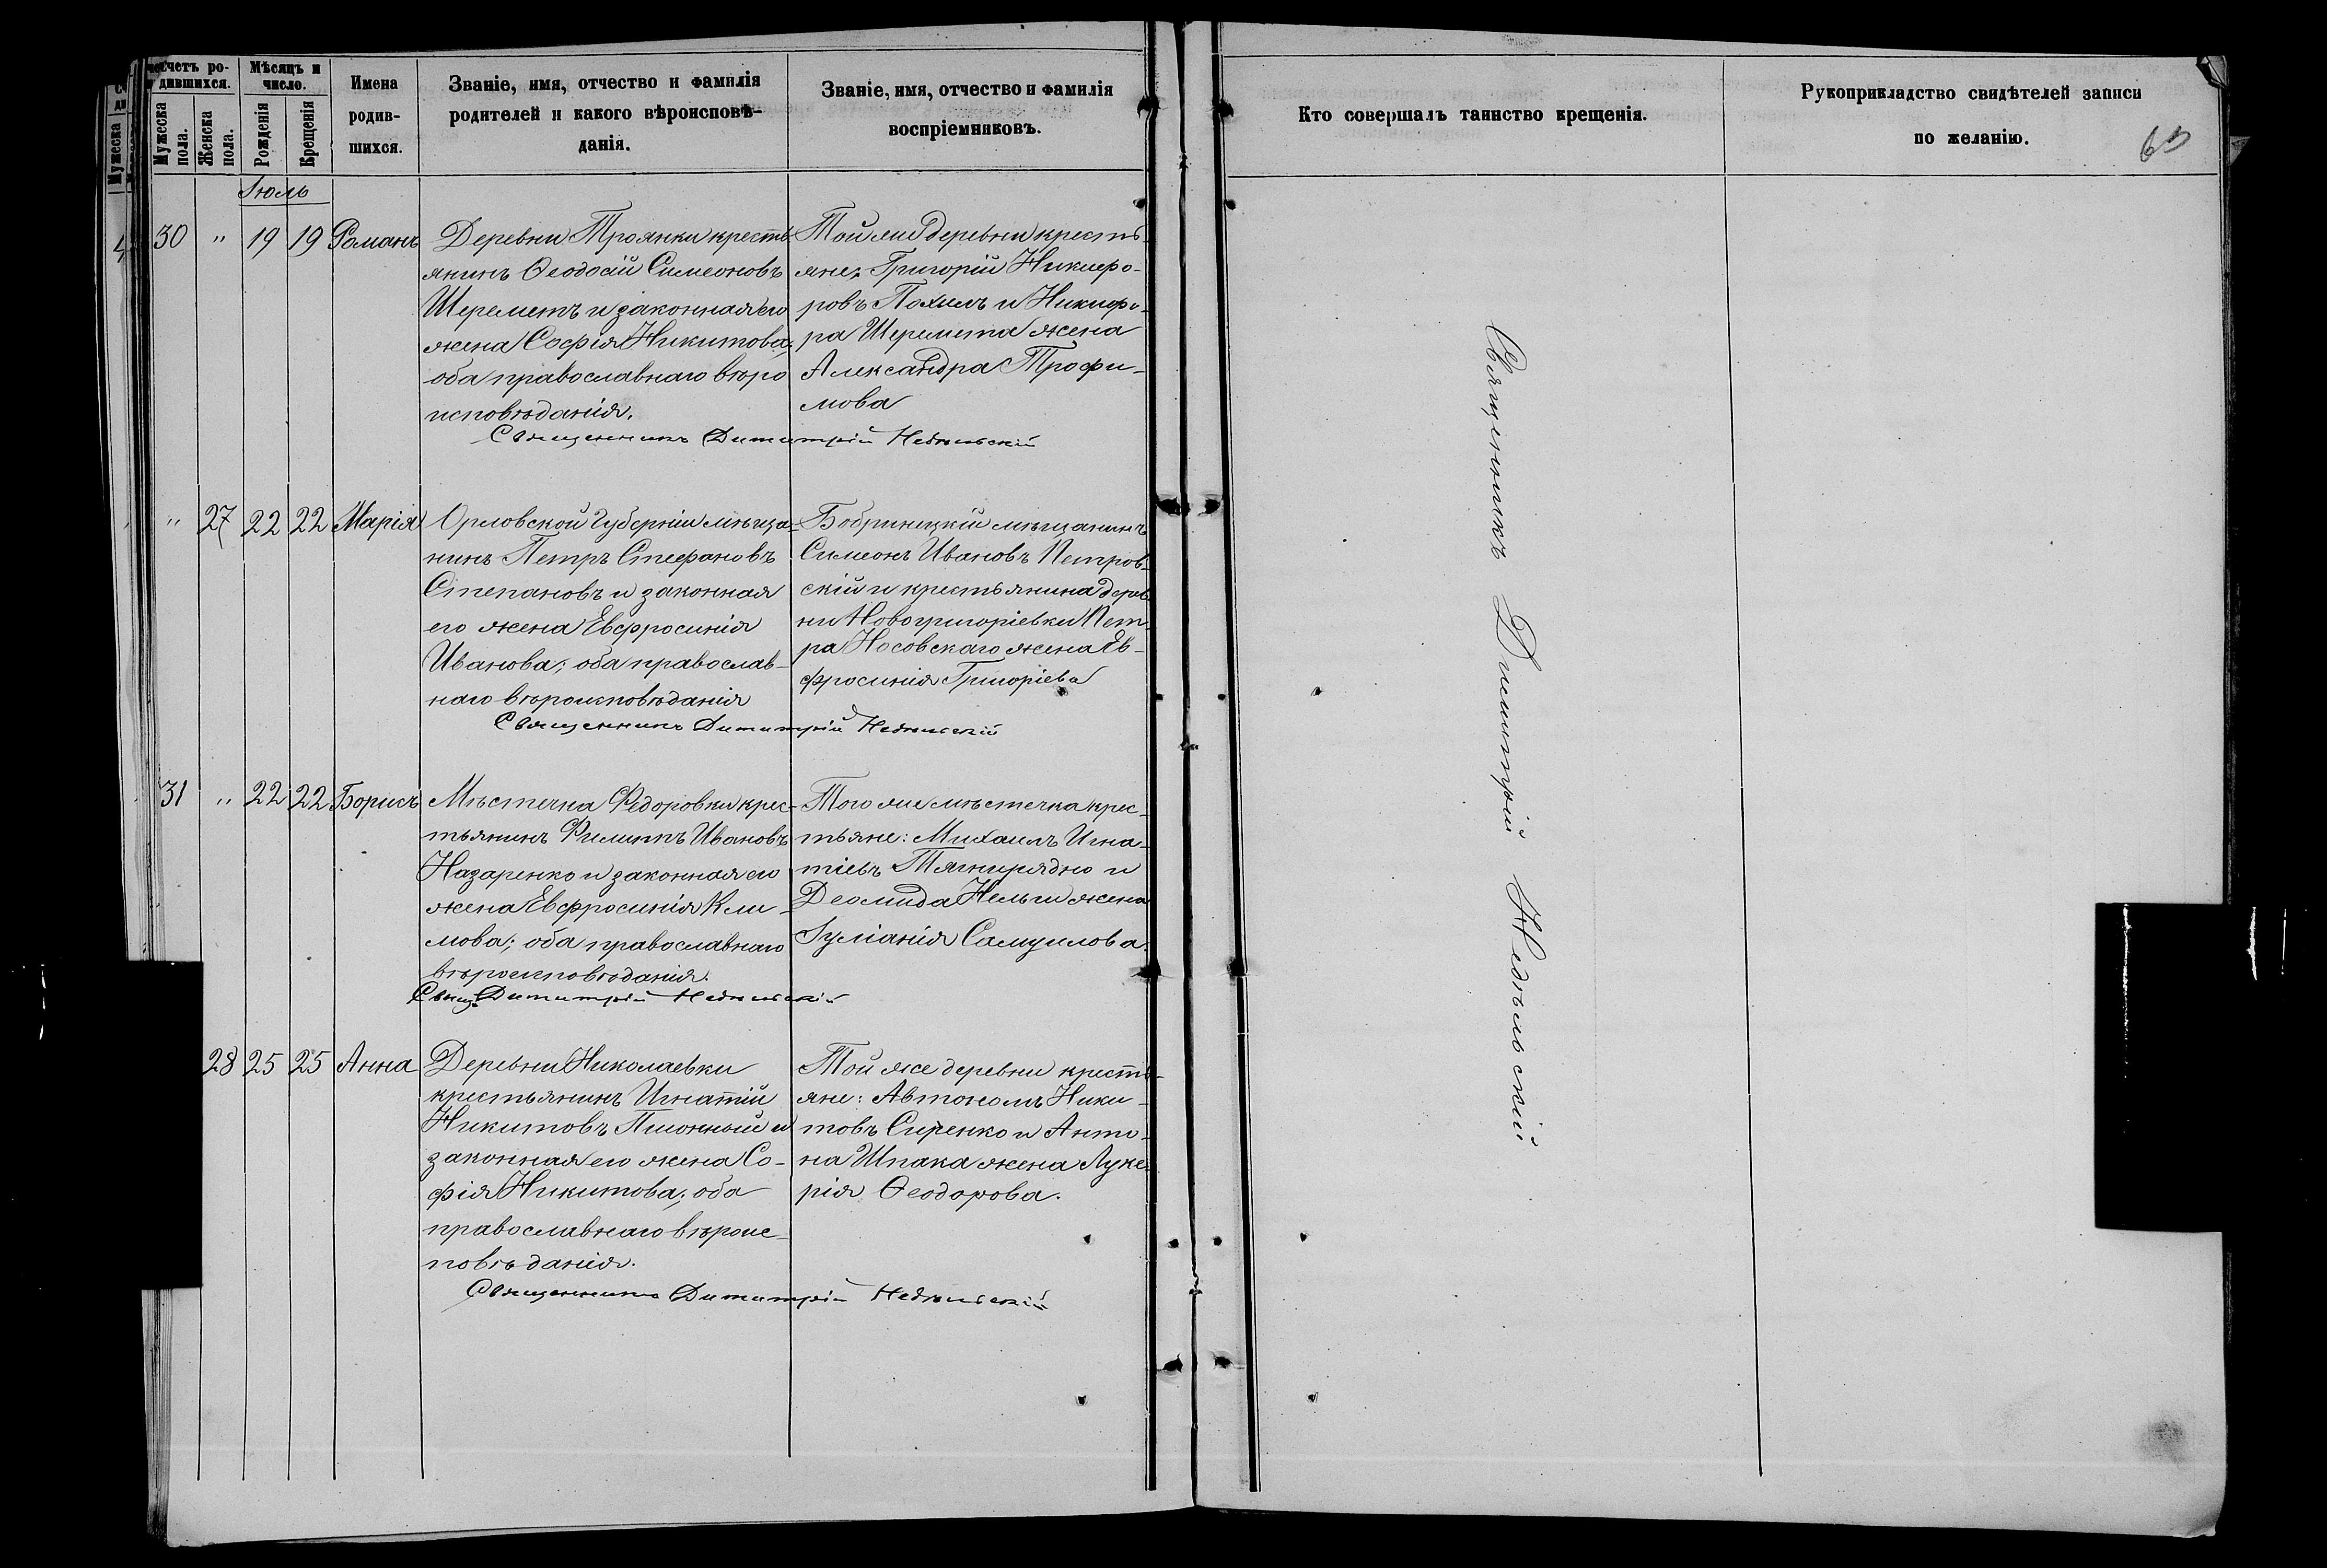 Счетъ ро-
дившихся.
Мужеска пола.
Женска пола.
Мѣсяцъ и
число.
Рожденія
Крещенія
Имена
родив-
шихся.
Званіе, имя, отчество и фамилія
родителей и какого вѣроисповѣ-
данія.
Званіе, имя, отчество и фамилія
воспріемниковъ.
Кто совершалъ таинство крещенія.
Рукоприкладство свидѣтелей записи
по желанію.
Іюль
30 " 19 19 Романъ
Деревни Троянки кресть-
янинъ Ѳеодосій Симеоновъ
Шереметъ и законная его
жена Софія Никитова;
оба православнаго вѣро
исповѣданія.
Той же деревни кресть-
яне: Григорій Никифо-
ровъ Похилъ и Никифо-
ра Шеремета жена
Александра Трофи-
мова
Священникъ Димитрій Недѣльскій
" 27 22 22 Марія
Орловской Губерніи мѣща-
нинъ Петръ Стефановъ
Степановъ и законная
его жена Евфросинія
Иванова; оба православ-
наго вѣроисповѣданія
Бобринецкій мѣщанинъ
Симеонъ Ивановъ Петров-
скій и крестьянина дерев
ни Новогригоріевки Пет-
ра Носовскаго жена Ев-
фросинія Григоріева
Священникъ Димитрій Недѣльскій
31 " 22 22 Борисъ
Мѣстечка Федоровки крес-
тьянинъ Филиппъ Ивановъ
Назаренко и законная его
жена Евфросинія Кли-
мова; оба православнаго
вѣроисповѣданія.
Того же мѣстечка крес-
тьяне: Михаилъ Игна-
тіевъ Тягнирядно и
Деомида жена
Іуліанія Самуилова.
Свящ. Димитрій Недѣльскій
28 25 25 Анна
Деревни Николаевки
крестьянинъ Игнатій
Никитовъ Пшонный и
законная его жена Со-
фія Никитова; оба
православнаго вѣроис-
повѣданія.
Той же деревни кресть-
яне: Автономъ Ники-
товъ Сиренко и Анто-
на Шпака жена Луке-
рія Ѳеодорова.
Священникъ Димитрій Недѣльскій
Священникъ Димитрій Недѣльскій